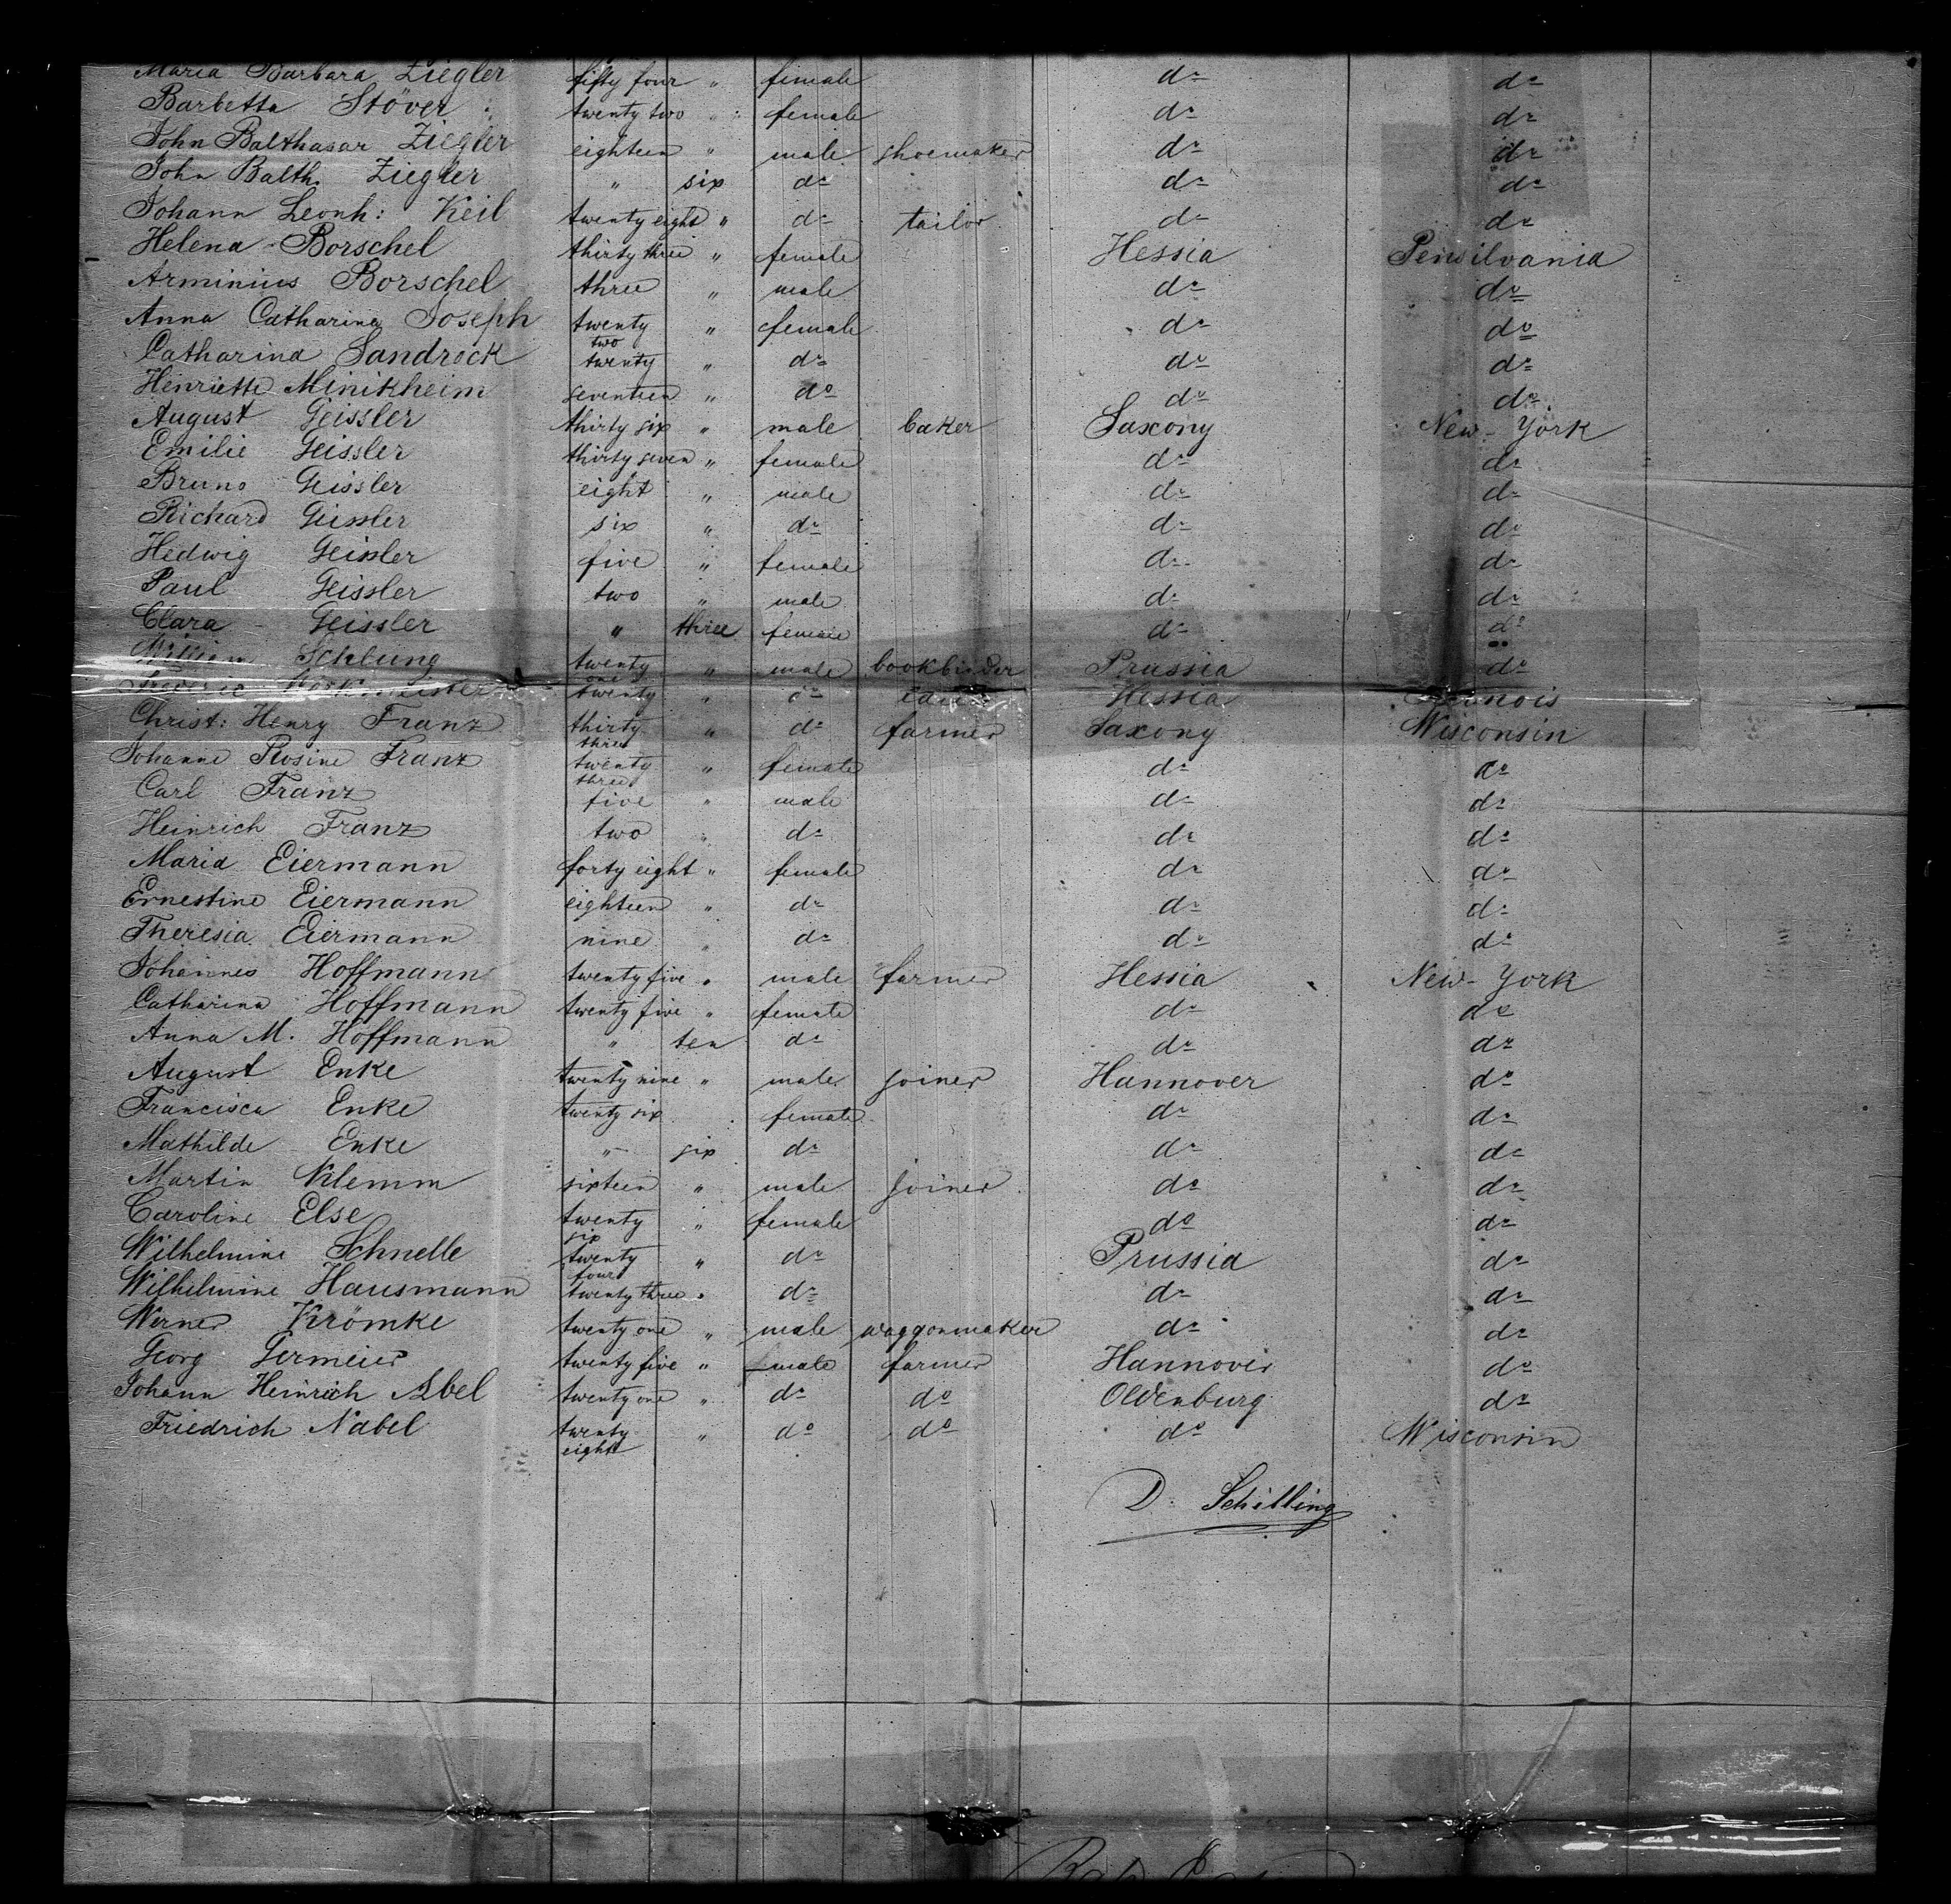 Maria Barbara Ziegler fifty four " female do do
Barbetta Stöver twenty two " female do do
John Balthasar Ziegler eighteen " male shoemaker do do
John Balth. Ziegler " six do do do
Johann Leonh: Keil twenty eight " do tailor do do
Helena Borschel thirty three " female Hessia Pensilvania
Arminius Borschel three " male do do
Anna Catharina Joseph twenty two " female do do
Catharina Sandrock twenty " do do do
Henriette Minikheim seventeen " do do do
August Geissler thirty six " male baker Saxony New-York
Emilie Geissler thirty seven " female do do
Bruno Geissler eight " male do do
Richard Geissler six " do do do
Hedwig Geissler five " female do do
Paul Geissler two " male do do
Clara Geissler " three female do do
Schlung twenty one " male bookbinder Prussia do
twenty " do Hessia
Christ: Henry Franz thirty three " do farmer Saxony Wisconsin
Johanne Rosine Franz twenty three " female do do
Carl Franz five " male do do
Heinrich Franz two " do do do
Maria Eiermann forty eight " female do do
Ernestine Eiermann eighteen " do do do
Theresia Eiermann nine " do do do
Johannes Hoffmann twenty five " male farmer Hessia New-York
Catharina Hoffmann twenty five " female do do
Anna M. Hoffmann " ten do do do
August Enke twenty nine " male joiner Hannover do
Francisca Enke twenty six female do do
Mathilde Enke " six do do do
Martin Klemm sixteen " male joiner do do
Caroline Else twenty six " female do do
Wilhelmine Schnelle twenty four " do Prussia do
Wilhelmine Hausmann twenty three " do do do
Werner Krömke twenty one " male waggonmaker do do
Georg Germeier twenty five " male farmer Hannover do
Johann Heinrich Abel twenty one " do do Oldenburg do
Friedrich Nabel twenty eight " do do do Wisconsin
D. Schilling